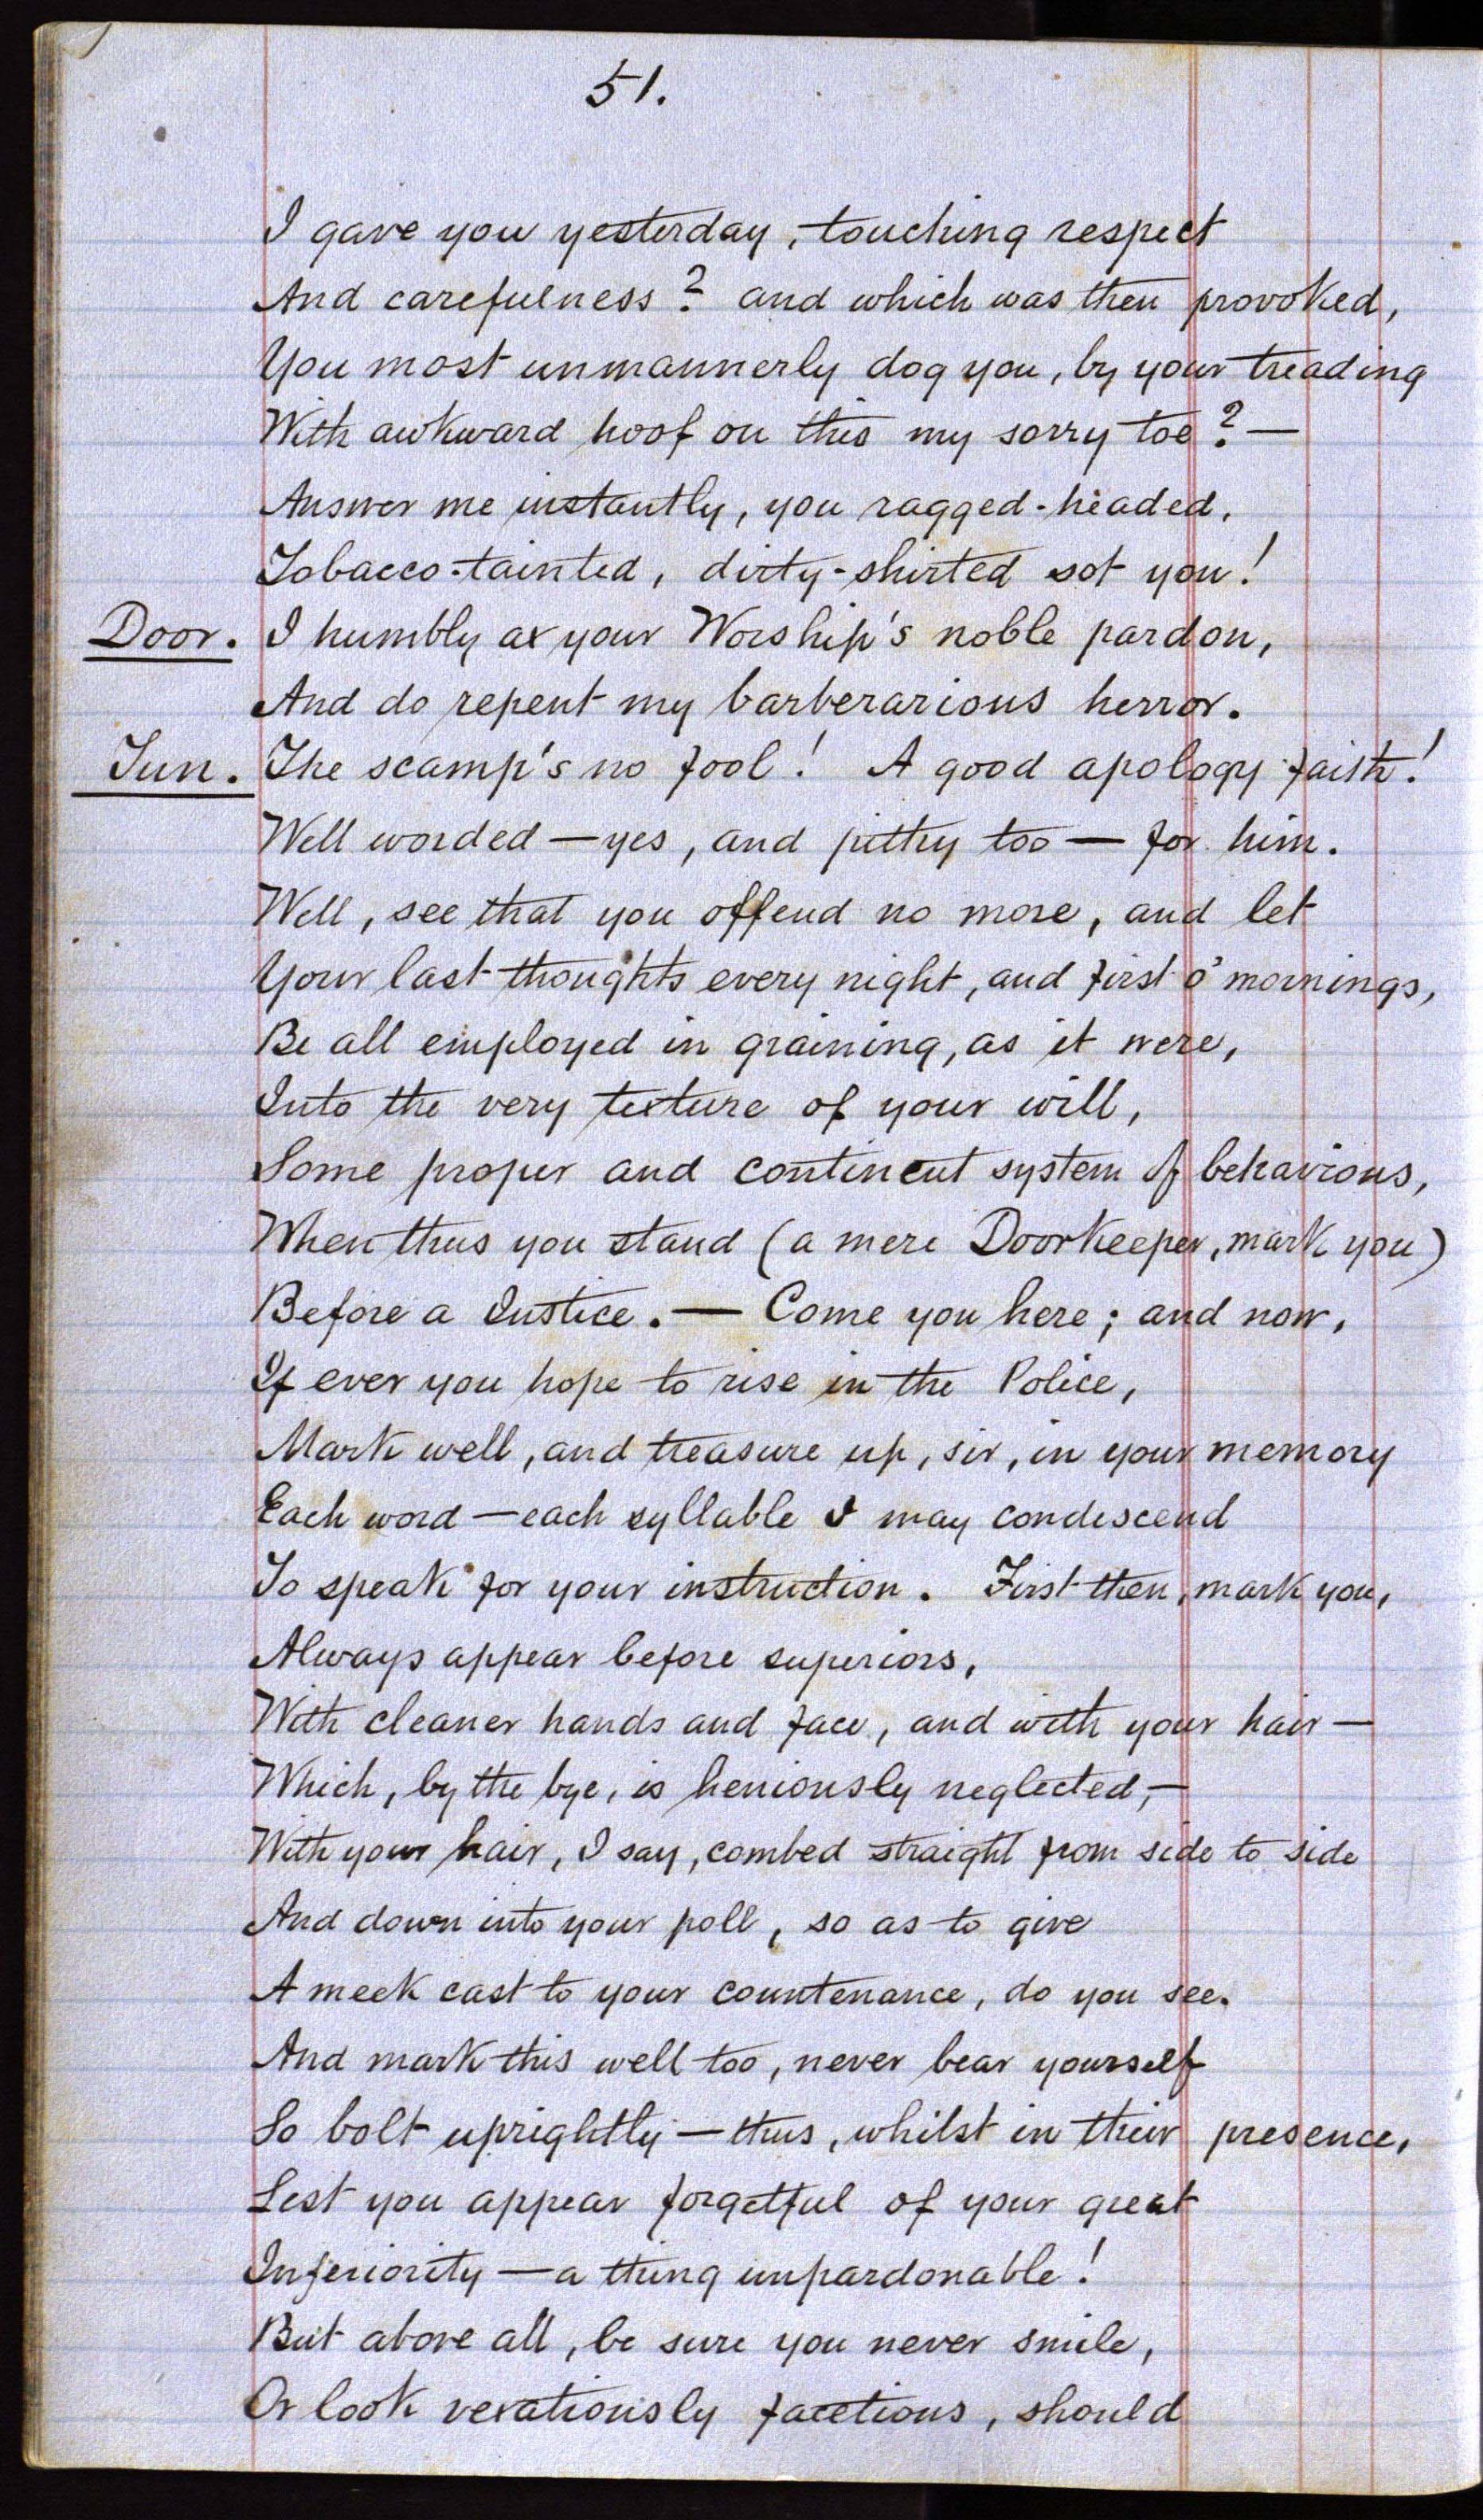 51.
I gave you yesterday, touching respect
And carefulness? and which was then provoked,
You most unmannerly dog you, by your treading
With awkward hoof on this my sorry toe? —
Answer me instantly, you ragged-headed,
Tobacco-tainted, dirty-shirted sot you!
Door. I humbly ax your Worship's noble pardon,
And do repent my barberarious herror.
Tun. The scamp's no fool! A good apology faith!
Well worded — yes, and pithy too — for him.
Well, see that you offend no more, and let
Your last thoughts every night, and first o' mornings,
Be all employed in graining, as it were,
Into the very texture of your will,
Some proper and continent system of behavious,
When thus you stand (a mere Doorkeeper, mark you)
Before a Justice. — Come you here; and now,
If ever you hope to rise in the Police,
Mark well, and treasure up, sir, in your memory
Each word — each syllable I may condescend
To speak for your instruction. First then, mark you,
Always appear before superiors,
With cleaner hands and face, and with your hair —
Which, by the bye, is heniously neglected, —
With your hair, I say, combed straight from side to side
And down into your poll, so as to give
A meek cast to your countenance, do you see.
And mark this well too, never bear yourself
So bolt uprightly — thus, whilst in their presence,
Lest you appear forgetful of your great
Inferiority — a thing unpardonable!
But above all, be sure you never smile,
Or look vexatiously facetious, should